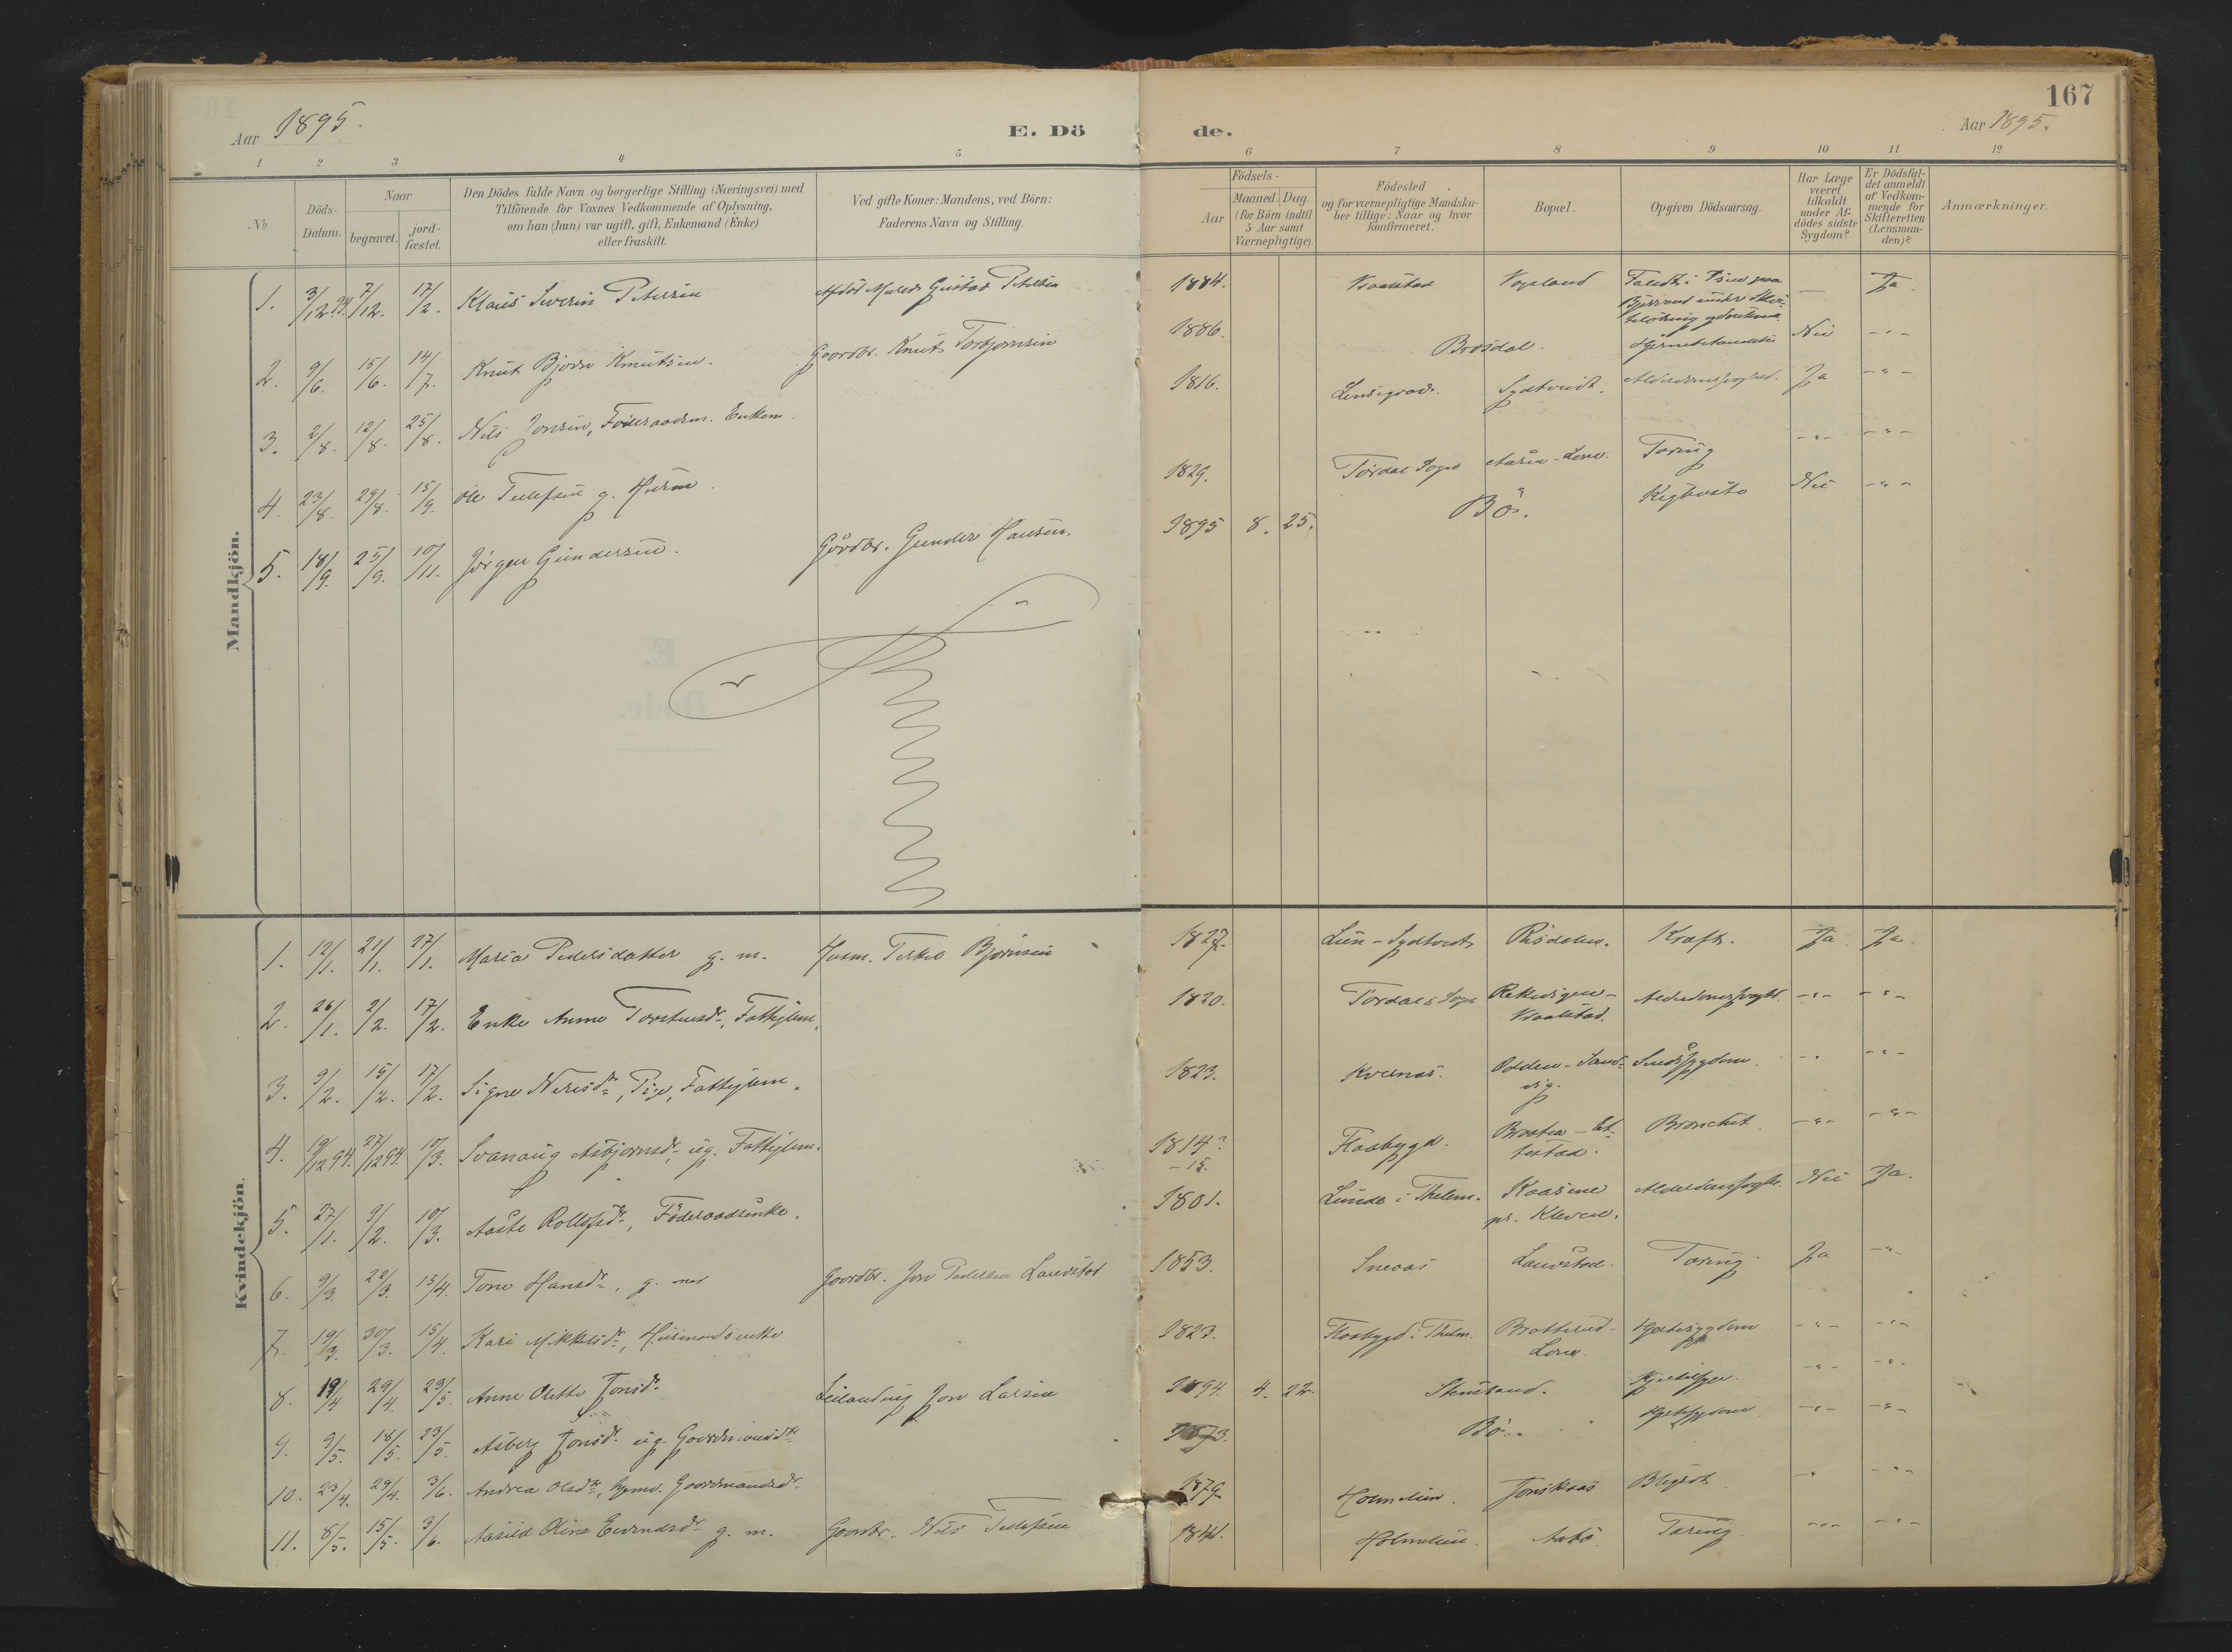 167
Aar 1895.
E. Dö de.
Aar 1895.
1 2 3 4 5 6 7 8 9 10 11 12
No
Döds-
Datum.
Naar
begravet.
jord-
fæstet.
Den Dödes fulde Navn og borgerlige Stilling (Næringsvei) med
Tilföiende for Voxnes Vedkommende af Oplysning,
om han (hun) var ugift, gift, Enkemand (Enke)
eller fraskilt.
Ved gifte Koner: Mandens, ved Börn:
Faderens Navn og Stilling.
Födsels-
Aar
Maaned. Dag.
(for Börn indtil
5 Aar samt
Værnepligtige).
Födested
og for værnepligtige Mandska-
ber tillige: Naar og hvor
konfirmeret.
Bopæl.
Opgiven Dödsaarsag.
Har Læge
været
tilkaldt
under Af-
dödes sidste
Sygdom?
Er Dödsfal-
det anmeldt
af Vedkom-
mende for
Skifteretten
(Lensman-
den)?
Anmærkninger.
Mandkjön.
1. 3/12 94. 7/12. 17/2. Klaus Severin Petersen Gustav Petersen 1884. Vraalstad Vogeland — Ja
2. 9/6. 15/6. 14/7. Knut Bjorn Knutsen. Gaardbr. Knut Torbjornsen 1886. Brosdal. Nei -"-
3. 2/8. 12/8. 25/8. Nils Jonsen, Föderaadsm. Enkem 1816. Sydtveidt. Alderdomssvaghed. Ja -"-
4. 23/8. 29/8. 15/9. Ole Tellefsen g. Husm. 1829. Tördal Sogn Tæring -"- -"-
5. 18/9. 25/9. 10/11. Jörgen Gundersen. Gårdbr. Gunder Hansen. 1895 8. 25. Bö. Kighoste Nei -"-
Kvindekjön.
1. 12/1. 21/1. 27/1. Maria Pedersdatter g. m. Husm. Terkel Bjørnsen 1827. Lien-Sydtveit Risdalen. Kræft. Ja Ja
2. 26/1. 2/2. 17/2. Enke Anne Torstensdr., Fattiglem. 1820. Tördals Sogn Rekevigen-
Vraalstad. Alderdomssvaghd. -"- -"-
3. 9/2. 15/2. 17/2. Signe Nerisdr., Pige, Fattiglem. 1823. Kvernes. Sand-
vig. Sindssygdom. -"- -"-
4. 19/12 94. 27/12 94. 10/3. Svanaug Asbjornsdr. ug. Fattiglem. 1814?
-15. Flaabygd. Bronchit -"- -"-
5. 27/1. 9/2. 10/3. Aaste Rollefsdr., Föderaadsenke. 1801. Lunde i Thelem. Kaasene
pr. Kleven. Nei Ja.
6. 9/3. 22/3. 15/4. Tone Hansdr., g. med Gaardbr. Jon Pedersen Lauvstad 1853. Sneaas Lauvstad. Tæring. Ja -"-
7. 19/3. 30/3. 15/4. Kari Mikkelsdr., Husmandsenke 1823. Flaabygd i Thelm. Hjertesygdom -"- -"-
8. 19/4 29/4. 23/5. Anne Olette Jonsdr. Leilænding Jon Larsen 1894. 4. 22. Stensand. -"- -"-
9. 9/5. 18/5. 23/5. Asberg Jonsdr. ug. Gaardmandsdtr. Bö. Hjertesygdom -"- -"-
10. 23/4. 29/4. 3/6. Andrea Olsdtr., Gaardmandsdr. 1879 Holmelien. Jonskaas -"- -"-
11. 8/5. 15/5. 3/6. Aasild Oline Eivindsdr. g. m. Gaardbr. Nils Tellefsen 1841. Holmelien. Tæring. -"- -"-